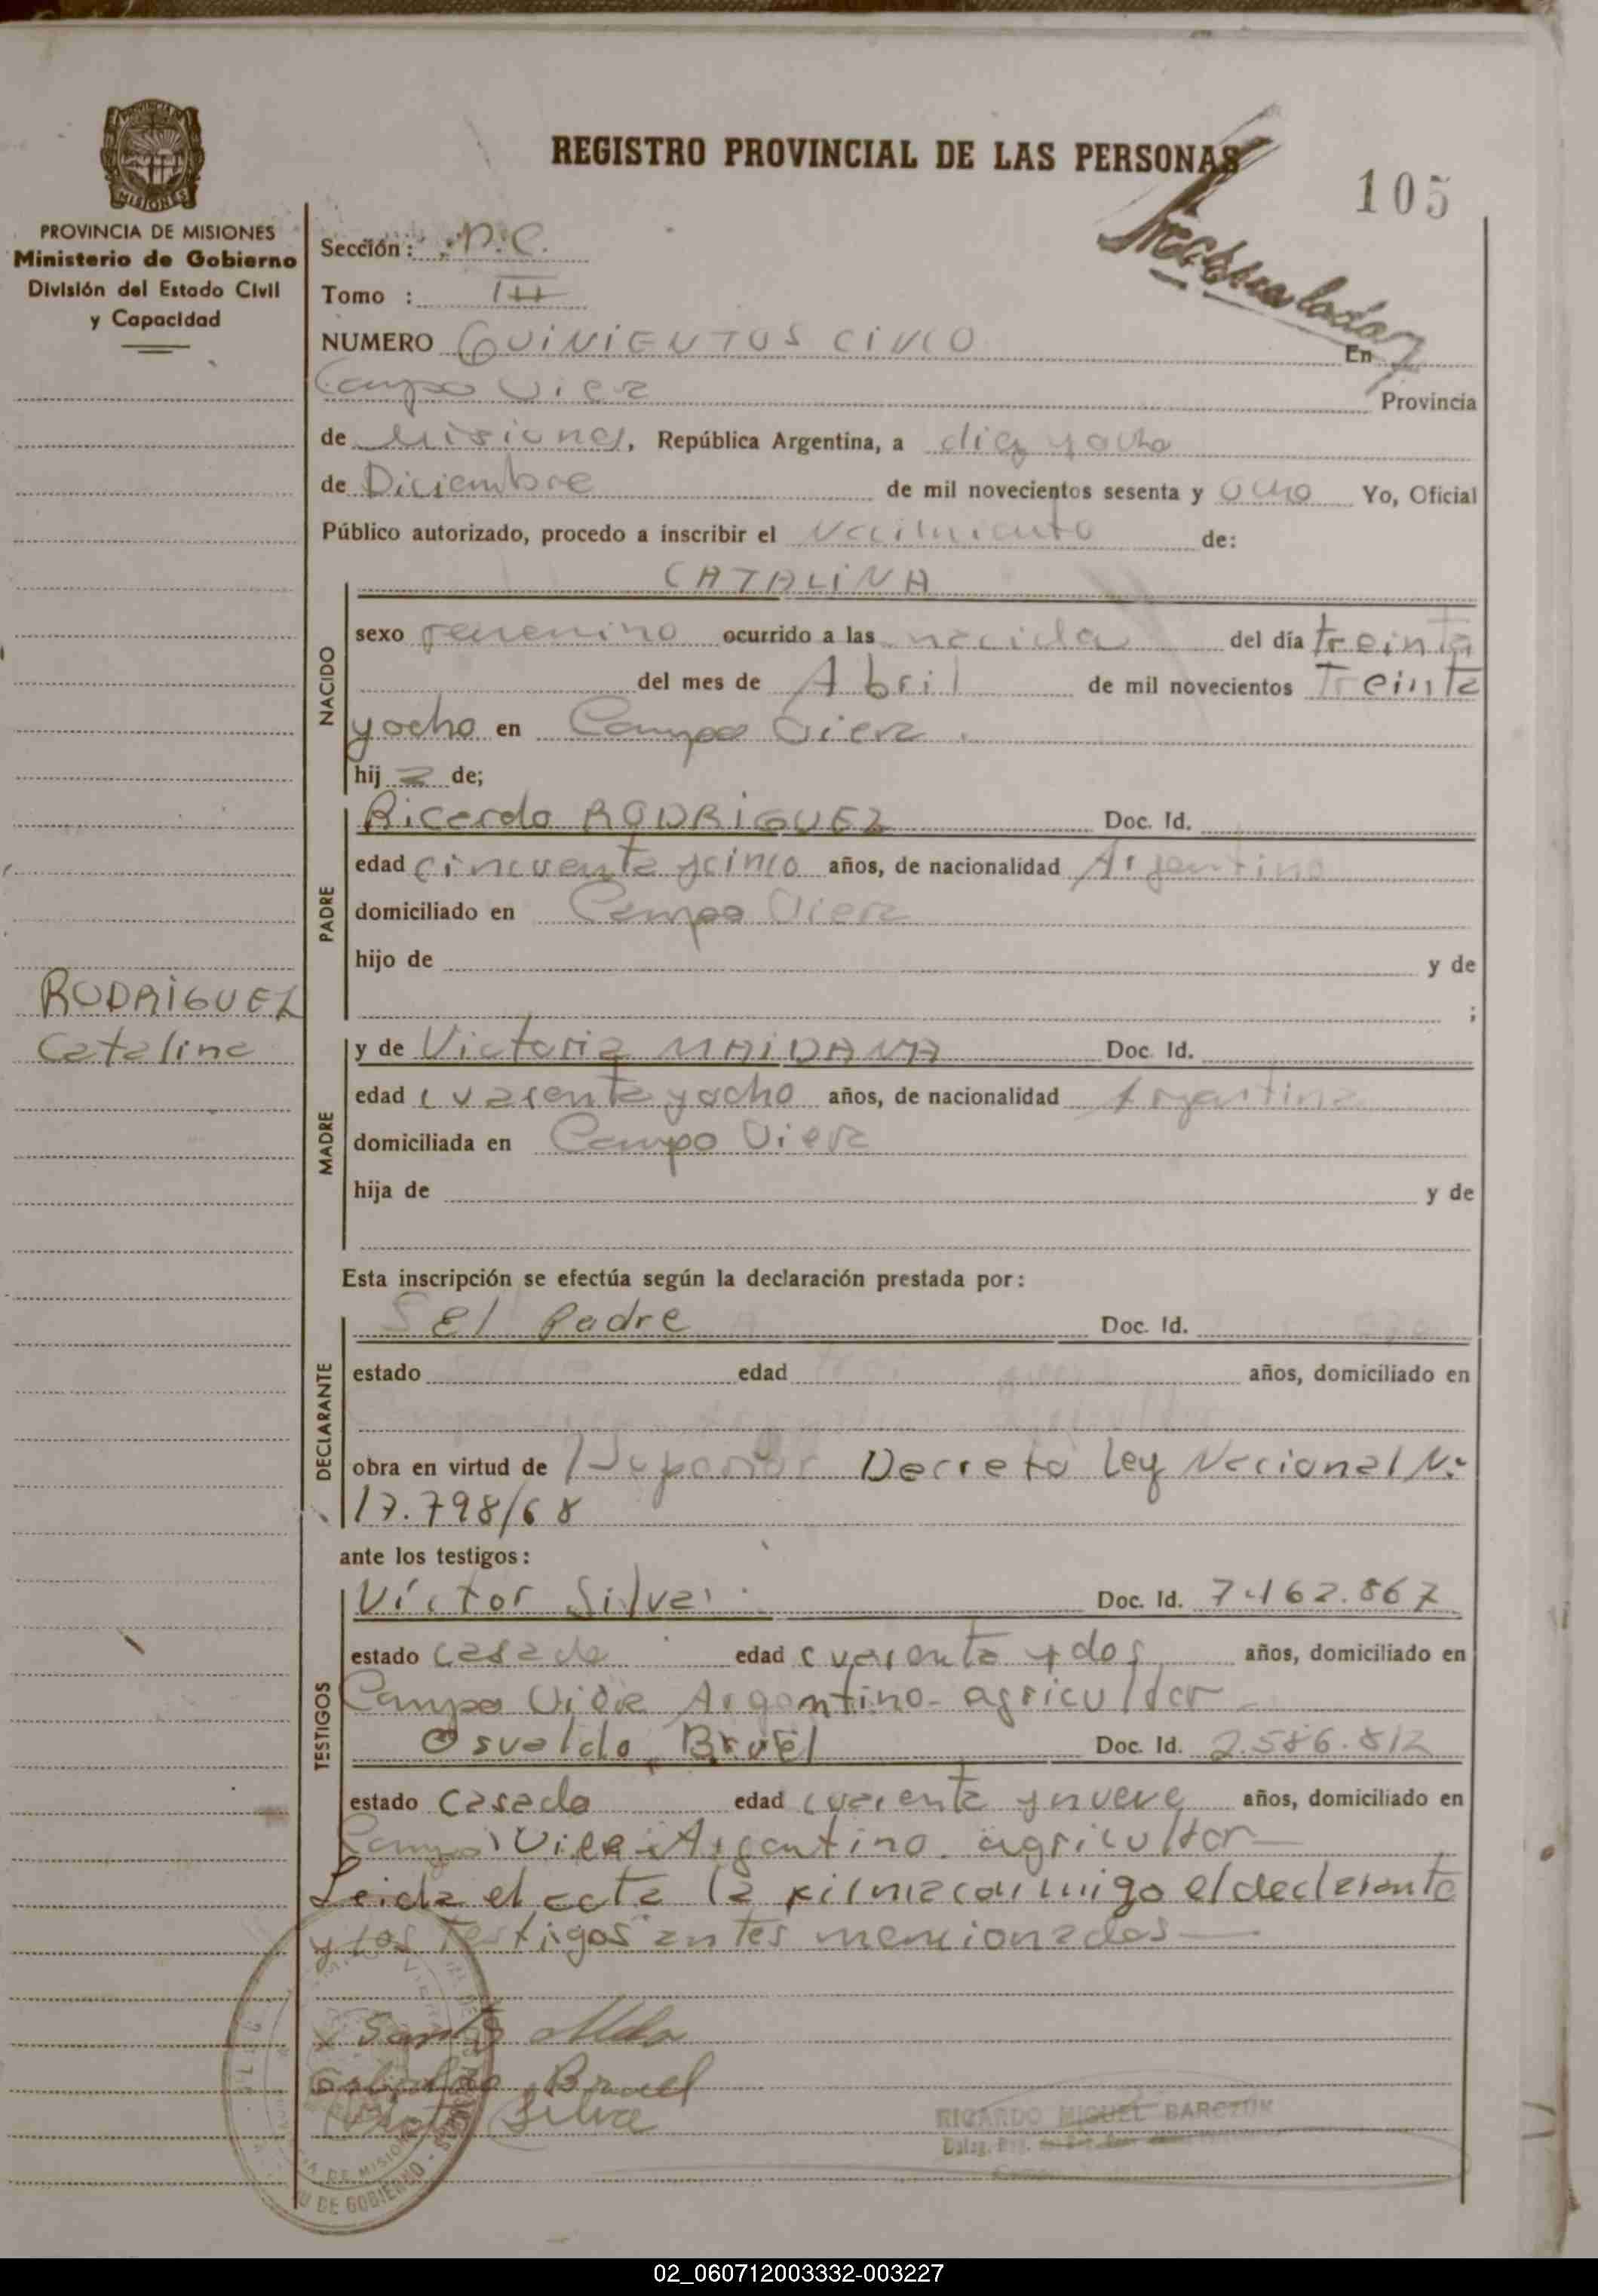 REGISTRO PROVINCIAL DE LAS PERSONAS
105
MISIONES
PROVINCIA DE MISIONES
Ministerio de Gobierno
División del Estado Civil
y Capacidad
Sección: P.C.
Tomo : III
NUMERO QUINIENTOS CINCO En
Campo Viera Provincia
de Misiones, República Argentina, a diez y ocho
de Diciembre de mil novecientos sesenta y ocho Yo, Oficial
Público autorizado, procedo a inscribir el Nacimiento de:
CATALINA
NACIDO
sexo femenino ocurrido a las nacida del día treinta
del mes de Abril de mil novecientos Treinta
y ocho en Campo Viera.
hija de;
PADRE
Ricardo RODRIGUEZ Doc. Id.
edad cincuenta y cinco años, de nacionalidad Argentino
domiciliado en Campo Viera
hijo de y de
;
RODRIGUEZ
Catalina
MADRE
y de Victoria MAIDANA Doc. Id.
edad cuarenta y ocho años, de nacionalidad Argentina
domiciliada en Campo Viera
hija de y de
Esta inscripción se efectúa según la declaración prestada por:
DECLARANTE
El Padre Doc. Id.
estado edad años, domiciliado en
obra en virtud de Decreto Ley Nacional Nº
17.798/68
ante los testigos:
TESTIGOS
Víctor Silva Doc. Id. 7.162.867
estado casado edad cuarenta y dos años, domiciliado en
Campo Viera Argentino - agricultor
Osvaldo Bruel Doc. Id. 2.586.812
estado casado edad cuarenta y nueve años, domiciliado en
Campo Viera Argentino. agricultor
Leida el acta la firma conmigo el declarante
y los testigos antes mencionados
Bruel
Silva
RICARDO MIGUEL BARCZUK
DE GOBIERNO
02_060712003332-003227